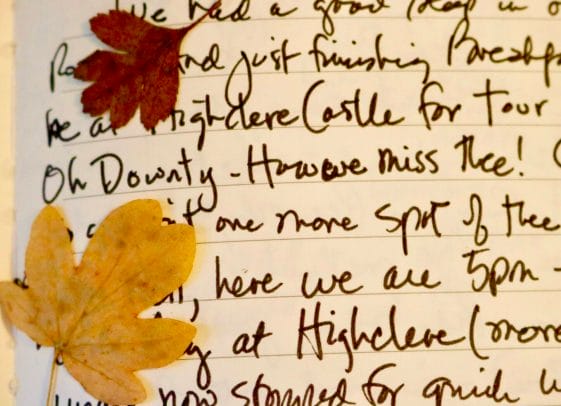 We had a good sleep in o
and just finishing Breakf
be at Highclere Castle for tour
Oh Downty - How we miss thee!
one more spot of thee
here we are 5pm -
at Highclere (more
now stopped for quick